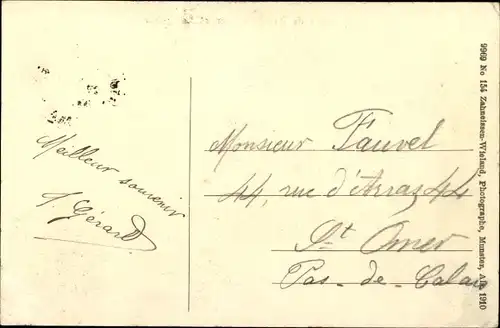 Meilleur souvenir
J. Gérard
Monsieur Fauvel
44, rue d'Arras 44
St Omer
Pas-de-Calais
9969 No 154 Zahneissen-Wieland, Photographe, Munster, Als. 1910